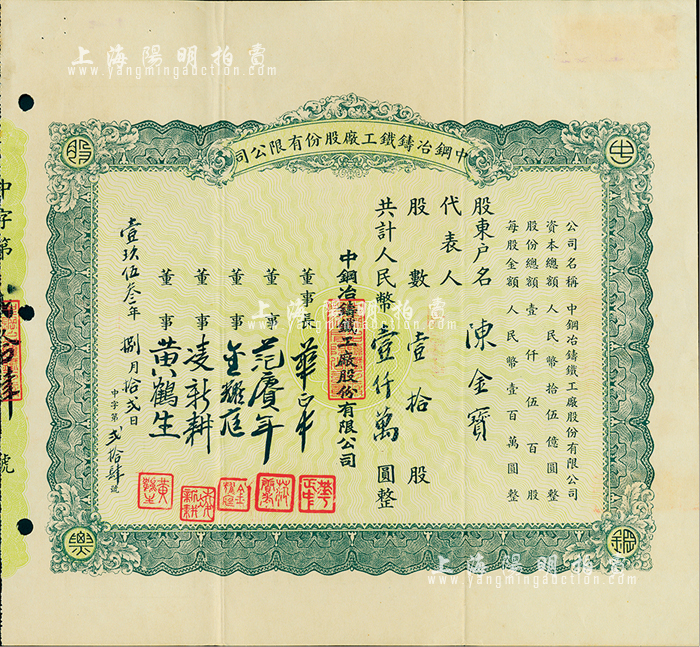 上海陽明拍賣
www.yangmingauction.com
中鋼冶鑄鐵工廠股份有限公司
公司名稱 中鋼冶鑄鐵工廠股份有限公司
資本總額 人民幣拾伍億圓整
股份總額 壹仟伍百股
每股金額 人民幣壹百萬圓整
股東户名 陳金寶
代表人
股數 壹拾 股
共計人民幣 壹仟萬 圓整
中鋼冶鑄鐵工廠股份有限公司
董事長
董事 范賡年
董事 金耀庭
董事 凌新耕
董事 黄鶴生
壹玖伍叁年 捌月拾弍日
中字第 弍拾肆 號
中字第
號
上海陽明拍賣
www.yangmingauction.com
上海陽明拍賣
www.yangmingauction.com